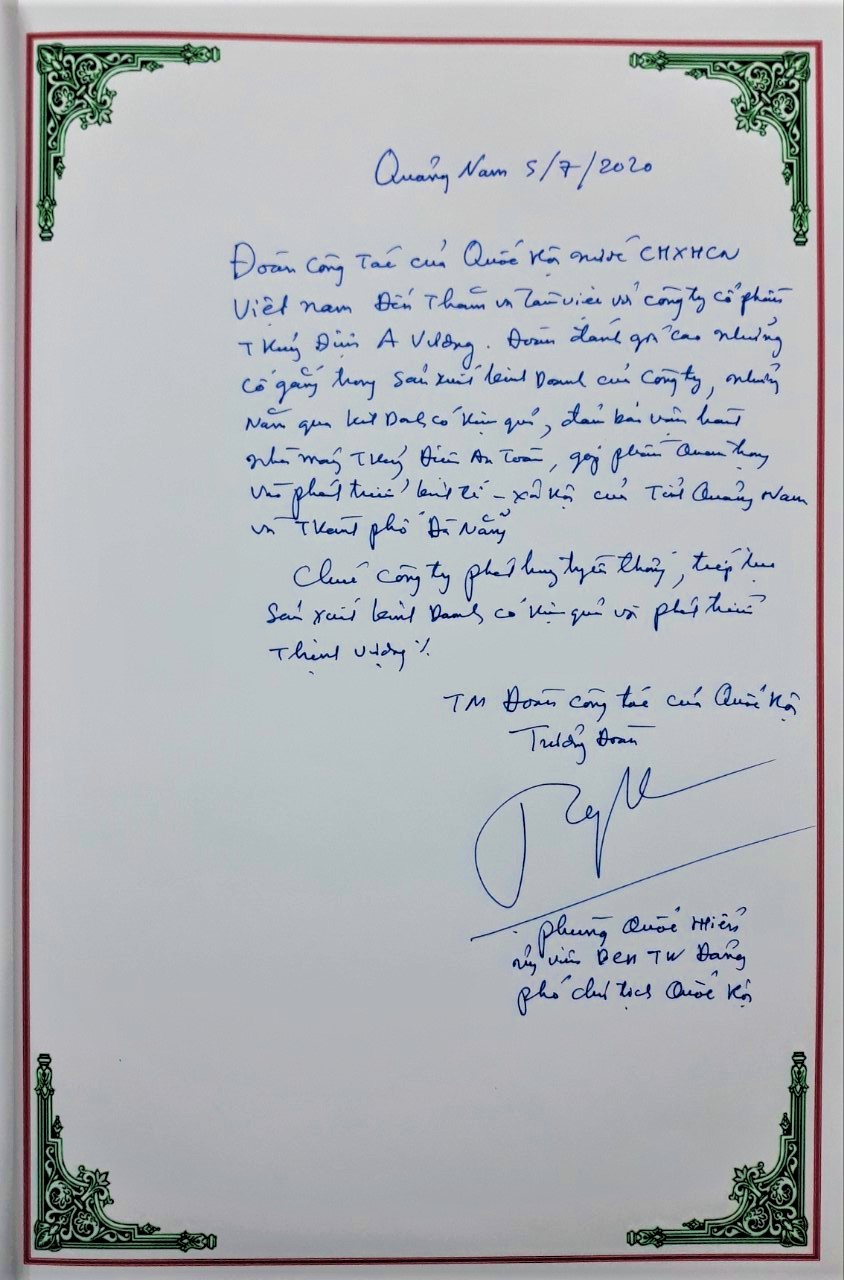 Quảng Nam 5/7/2020
Đoàn công tác của Quốc hội nước CHXHCN
Việt Nam đến thăm và làm việc với công ty cổ phần
Thuỷ Điện A Vương. Đoàn đánh giá cao những
cố gắng trong sản xuất kinh doanh của công ty, những
năm qua kinh doanh có hiệu quả, đảm bảo vận hành
nhà máy Thuỷ Điện An Toàn, góp phần quan trọng
vào phát triển kinh tế - xã hội của Tỉnh Quảng Nam
và Thành phố Đà Nẵng
Chúc công ty phát huy truyền thống, tiếp tục
sản xuất kinh doanh có hiệu quả và phát triển
Thịnh vượng ./.
TM Đoàn công tác của Quốc hội
Trưởng Đoàn
Phùng Quốc Hiển
Uỷ viên BCH TW Đảng
Phó chủ tịch Quốc hội